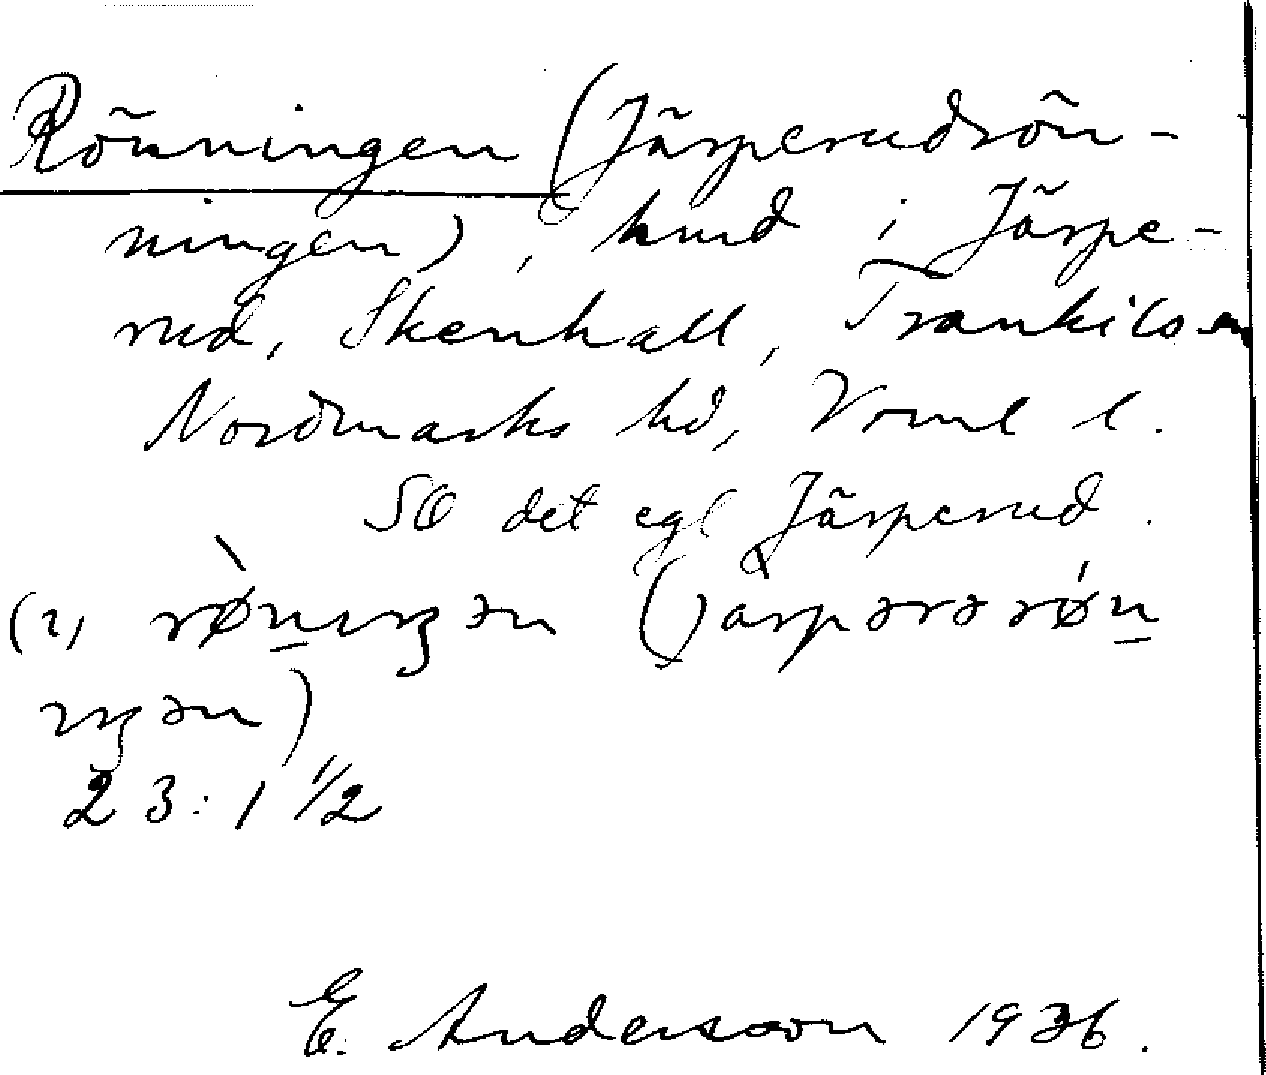 Rönningen (Järperudrön-
ningen), hmd i Järpe-
rud, Skenhall, Trankils sn
Nordmarks hd, Vrml l.
SO det egl Järperud.
(2) rønıŋən (järpərərøn
ıŋən)
23:1 1/2
E. Andersson 1936.